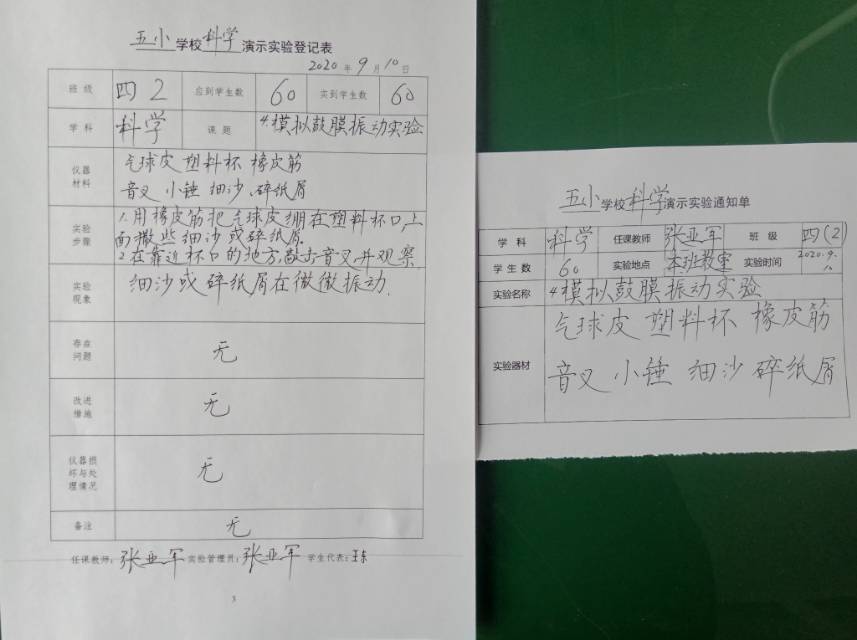 五小学校科学演示实验登记表
2020年9月10日
班级 四2 应到学生数 60 实到学生数 60
学科 科学 课题 4.模拟鼓膜振动实验
仪器材料 气球皮 塑料杯 橡皮筋
音叉 小锤 细沙.碎纸屑
实验步骤 1.用橡皮筋把气球皮绷在塑料杯口,上
面撒些细沙或碎纸屑.
2.在靠近杯口的地方,敲击音叉并观察.
实验现象 细沙或碎纸屑在微微振动.
存在问题 无
改进措施 无
仪器损坏与处理情况 无
备注 无
任课教师:张亚军 实验管理员:张亚军 学生代表:王东
五小学校科学演示实验通知单
学科 科学 任课教师 张亚军 班级 四(2)
学生数 60 实验地点 本班教室 实验时间 2020.9.10
实验名称 4.模拟鼓膜振动实验
实验器材 气球皮 塑料杯 橡皮筋
音叉 小锤 细沙 碎纸屑